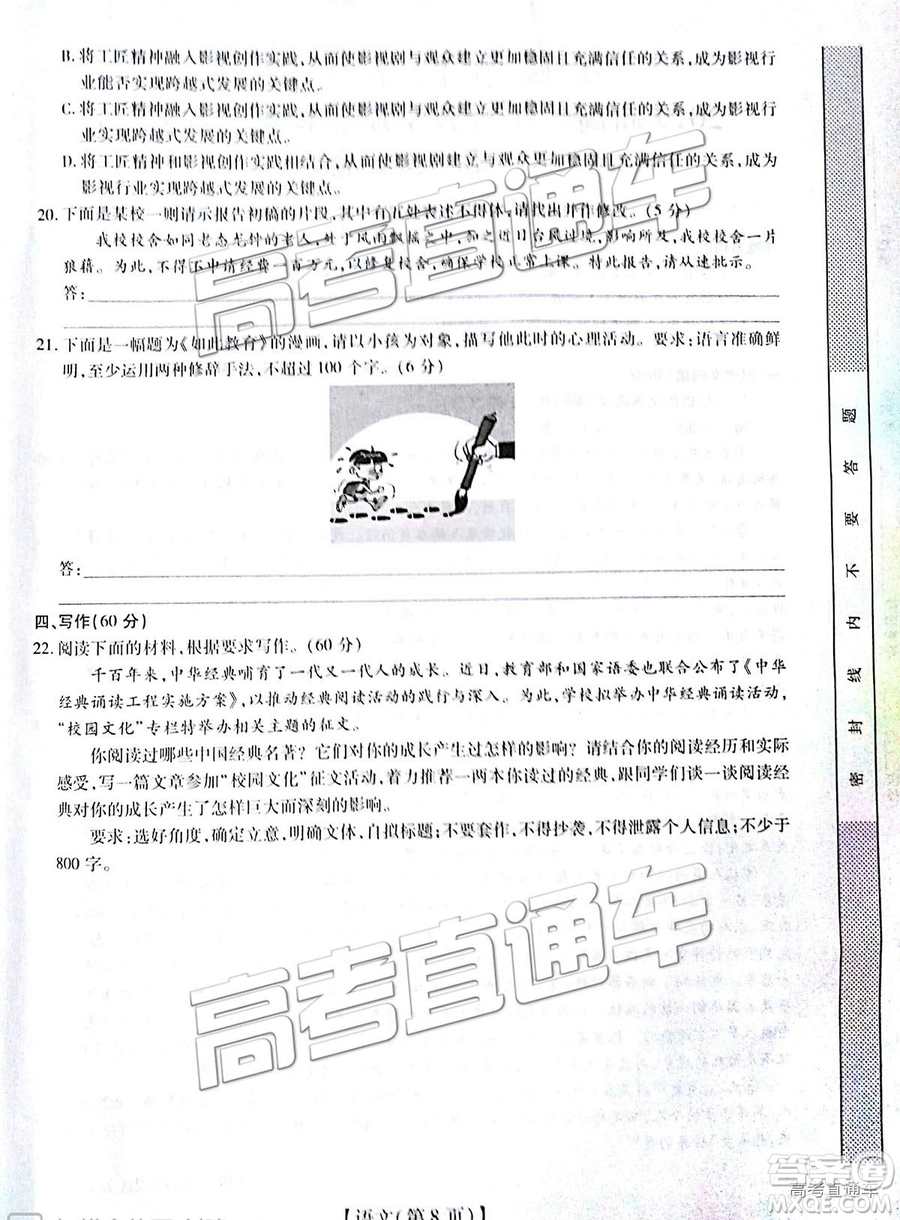 B. 将工匠精神融入影视创作实践,从而使影视剧与观众建立更加稳固且充满信任的关系,成为影视行
业能否实现跨越式发展的关键点。
C. 将工匠精神融入影视创作实践,从而使影视剧与观众建立更加稳固且充满信任的关系,成为影视行
业实现跨越式发展的关键点。
D. 将工匠精神和影视创作实践相结合,从而使影视剧建立与观众更加稳固且充满信任的关系,成为
影视行业实现跨越式发展的关键点。
20. 下面是某校一则请示报告初稿的片段,其中有五处表述不得体,请找出并作修改。(5 分)
我校校舍如同老态龙钟的老人,处于风雨飘摇之中,加之近日台风过境,影响所及,校舍一片
狼藉。为此,不得不申请经费一百万元,以修复校舍,确保学校正常上课。特此报告,请从速批示。
答:
21. 下面是一幅题为《如此教育》的漫画,请以小孩为对象,描写他此时的心理活动。要求:语言准确鲜
明,至少运用两种修辞手法,不超过 100 个字。(6 分)
答:
四、写作(60 分)
22. 阅读下面的材料,根据要求写作。(60 分)
千百年来,中华经典哺育了一代又一代人的成长。近日,教育部和国家语委也联合公布了《中华
经典诵读工程实施方案》,以推动经典阅读活动的践行与深入。为此,学校拟举办中华经典诵读活动,
“校园文化”专栏特举办相关主题的征文。
你阅读过哪些中国经典名著?它们对你的成长产生过怎样的影响?请结合你的阅读经历和实际
感受,写一篇文章参加“校园文化”征文活动,着力推荐一两本你读过的经典,跟同学们谈一谈阅读经
典对你的成长产生了怎样巨大而深刻的影响。
要求:选好角度,确定立意,明确文体,自拟标题;不要套作,不得抄袭,不得泄露个人信息;不少于
800 字。
【语文(第 8 页)】
密 封 线 内 不 要 答 题
高考直通车
高考直通车
答案卷
高考直通车
MXQE.COM